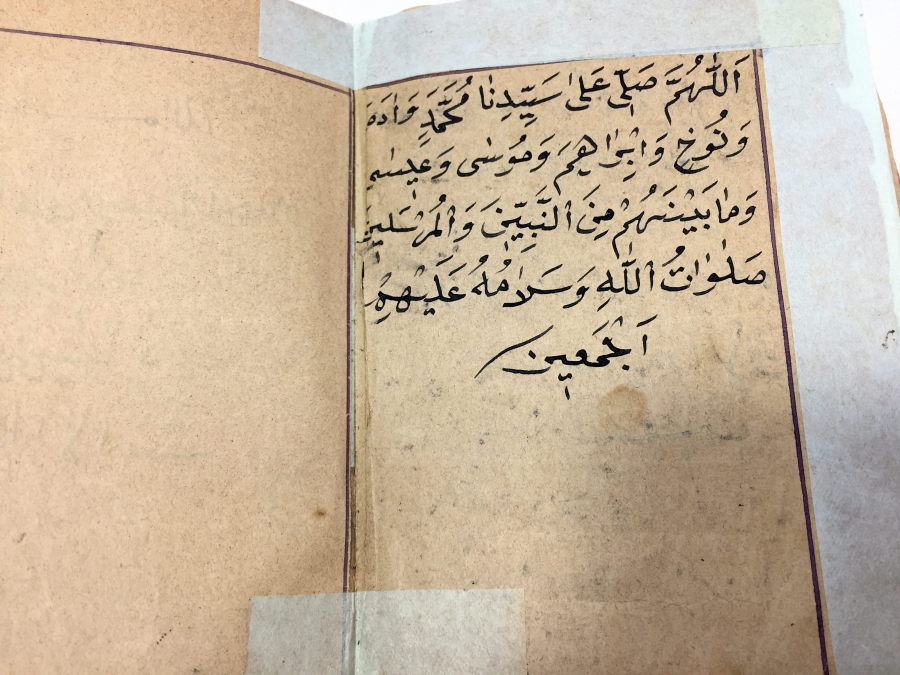 اَللّٰهُمَّ صَلِّ عَلٰى سَيِّدِنَا مُحَمَّدٍ وَاٰدَمَ
وَنُوحٍ وَاِبْرٰاهِيمَ وَمُوسٰى وَعِيسٰى
وَمٰا بَيْنَهُمْ مِنَ النَّبِيّ۪نَ وَالْمُرْسَلِينَ
صَلَوٰاتُ اللّٰهِ وَسَلٰامُهُ عَلَيْهِمْ
اَجْمَعِينَ